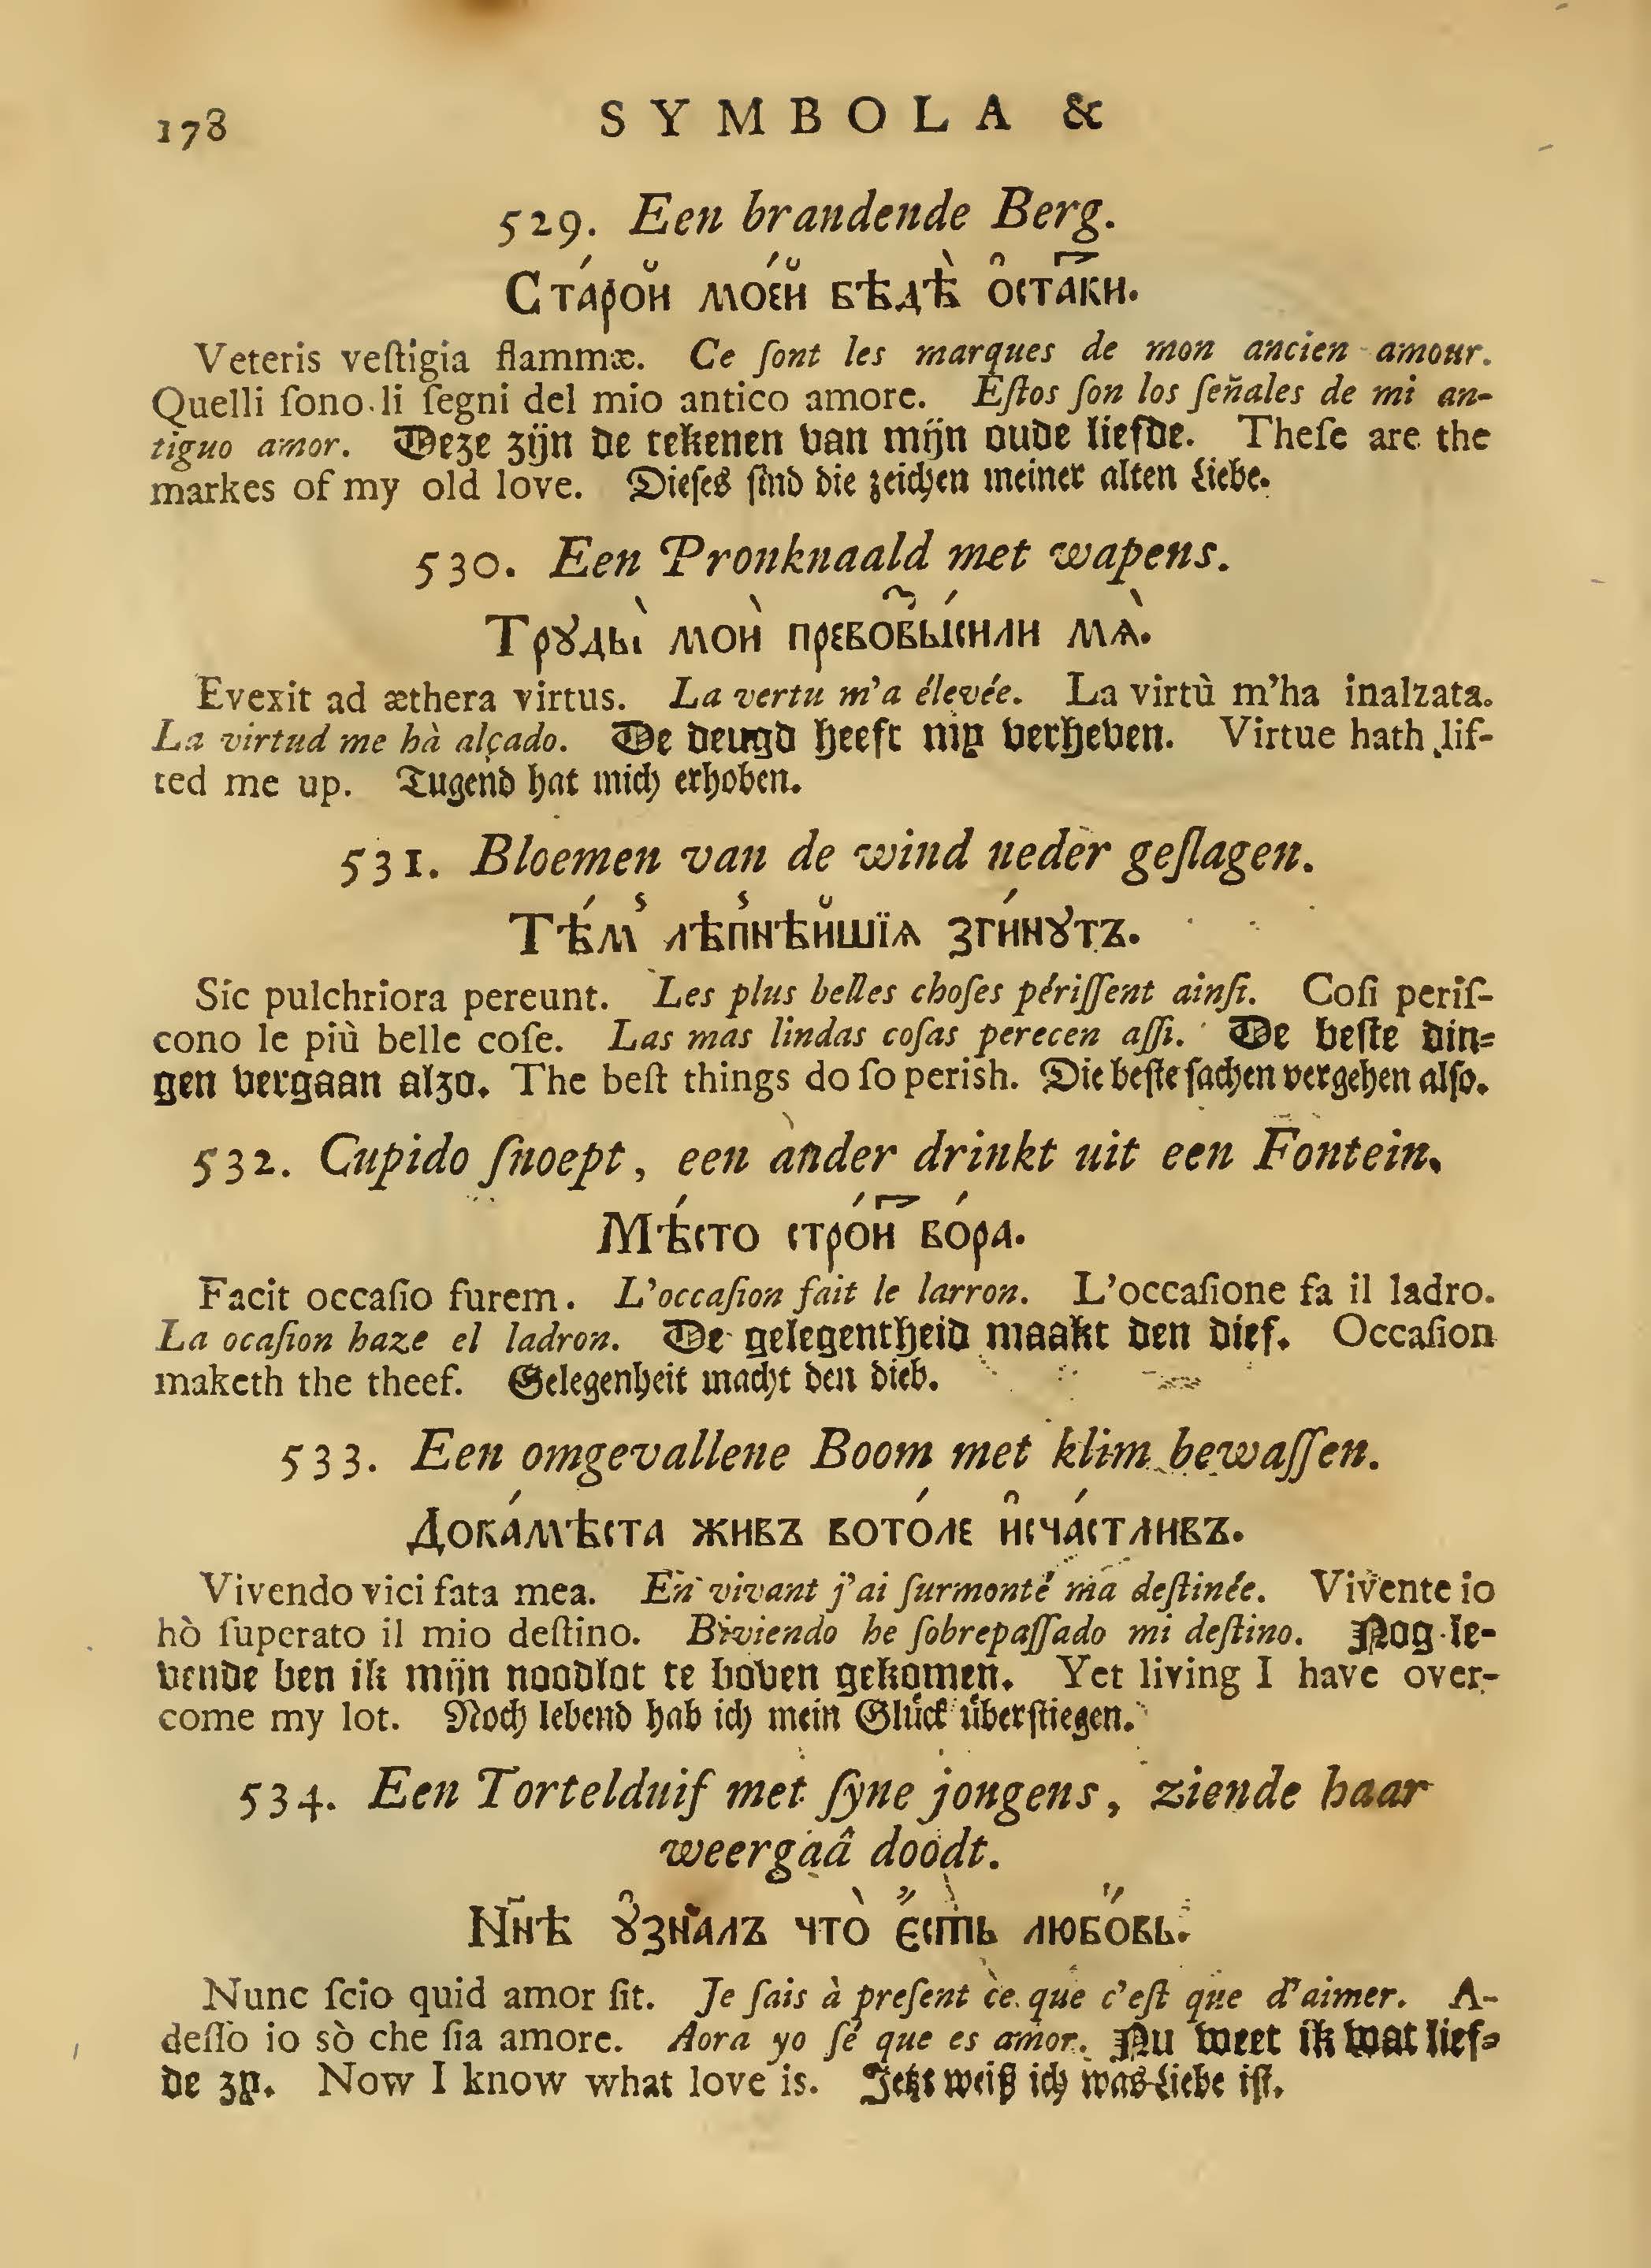 178 SYMBOLA &
529. Een brandende Berg.
Ста́рой мое́й бѣдѣ̀ ѻста́ки.
Veteris veſtigia flammæ. Ce ſont les marques de mon ancien amour.
Quelli ſono li ſegni del mio antico amore. Eſtos ſon los ſeñales de mi an-
tiguo amor. Deze zijn de tekenen van mijn oude liefde. Theſe are the
markes of my old love. Dieſes ſind die zeichen meiner alten Liebe.
530. Een Pronknaald met wapens.
Трꙋды̀ моѝ превовы́сили мѧ̀.
Evexit ad æthera virtus. La vertu m'a élevée. La virtù m'ha inalzata.
La virtud me hà alçado. De deugd heeft my verheven. Virtue hath lif-
ted me up. Tugend hat mich erhoben.
531. Bloemen van de wind neder geſlagen.
Тѣ́м лѣпнѣйшїѧ зги́нꙋтъ.
Sic pulchriora pereunt. Les plus belles choſes périſſent ainſi. Coſi periſ-
cono le più belle coſe. Las mas lindas coſas perecen aſſi. De beſte din=
gen vergaan alzo. The beſt things do ſo perish. Die beſte ſachen vergehen alſo.
532. Cupido ſnoept, een ander drinkt uit een Fontein.
Мѣ́сто стро́и во́ра.
Facit occaſio furem. L'occaſion fait le larron. L'occaſione fa il ladro.
La ocaſion haze el ladron. De gelegentheid maakt den dief. Occaſion
maketh the theef. Gelegenheit macht den dieb.
533. Een omgevallene Boom met klim bewaſſen.
Дока́мѣста живъ вото́ле и҆сча́стливъ.
Vivendo vici fata mea. En vivant j'ai ſurmonté ma deſtinée. Vivente io
hò ſuperato il mio deſtino. Biviendo he ſobrepaſſado mi deſtino. Nog le-
vende ben ik mijn noodlot te boven gekomen. Yet living I have over-
come my lot. Noch lebend hab ich mein Gluͤck uͤberſtiegen.
534. Een Tortelduif met ſyne jongens, ziende haar
weergaâ doodt.
Нн҃ѣ ꙋзналъ что̀ є҆сть любо́вь.
Nunc ſcio quid amor ſit. Je ſais à preſent ce que c'eſt que d'aimer. A-
deſſo io sò che ſia amore. Aora yo ſé que es amor. Nu weet ik wat lief=
de zy. Now I know what love is. Jetzt weiß ich was Liebe iſt.